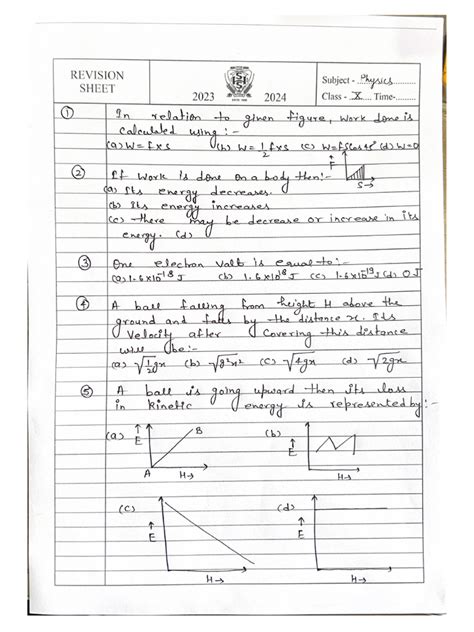 REVISION
SHEET
2023
2024
Subject - Physics
Class - X Time-
① In relation to given figure, work done is
calculated using :-
(a) W = f×s (b) W = 1/2 f×s (c) W = fscosθ (d) W=0
F
S→
② If work is done on a body then:-
(a) Its energy decreases.
(b) Its energy increases
(c) there may be decrease or increase in its
energy. (d)
③ One electron Volt is equal to:-
(a) 1.6×10⁻¹⁸ J (b) 1.6×10⁸ J (c) 1.6×10⁻¹⁹ J (d) 0 J
④ A ball falling from height H above the
ground and falls by the distance x. Its
Velocity after Covering this distance
will be:-
(a) √1/2gx (b) √g²x² (c) √4gx (d) √2gx
⑤ A ball is going upward then its loss
in Kinetic energy is represented by:-
(a) ↑ E A B H→
(b) ↑ E H→
(c) ↑ E H→
(d) ↑ E H→